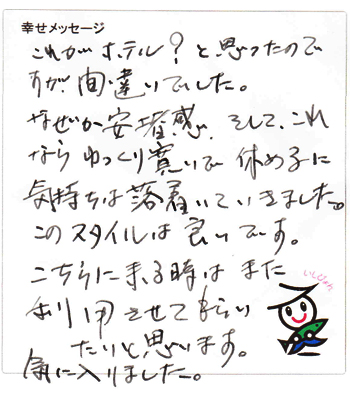 幸せメッセージ
これがホテル?と思ったので
すが、間違いでした。
なぜか安堵感、そして、これ
ならゆっくり寛いで休める子に
気持ちは落着いていきました。
このスタイルは良いです。
こちらに来る時はまた
利用させてもらい
たいと思います。
気に入りました。
いしじゅん